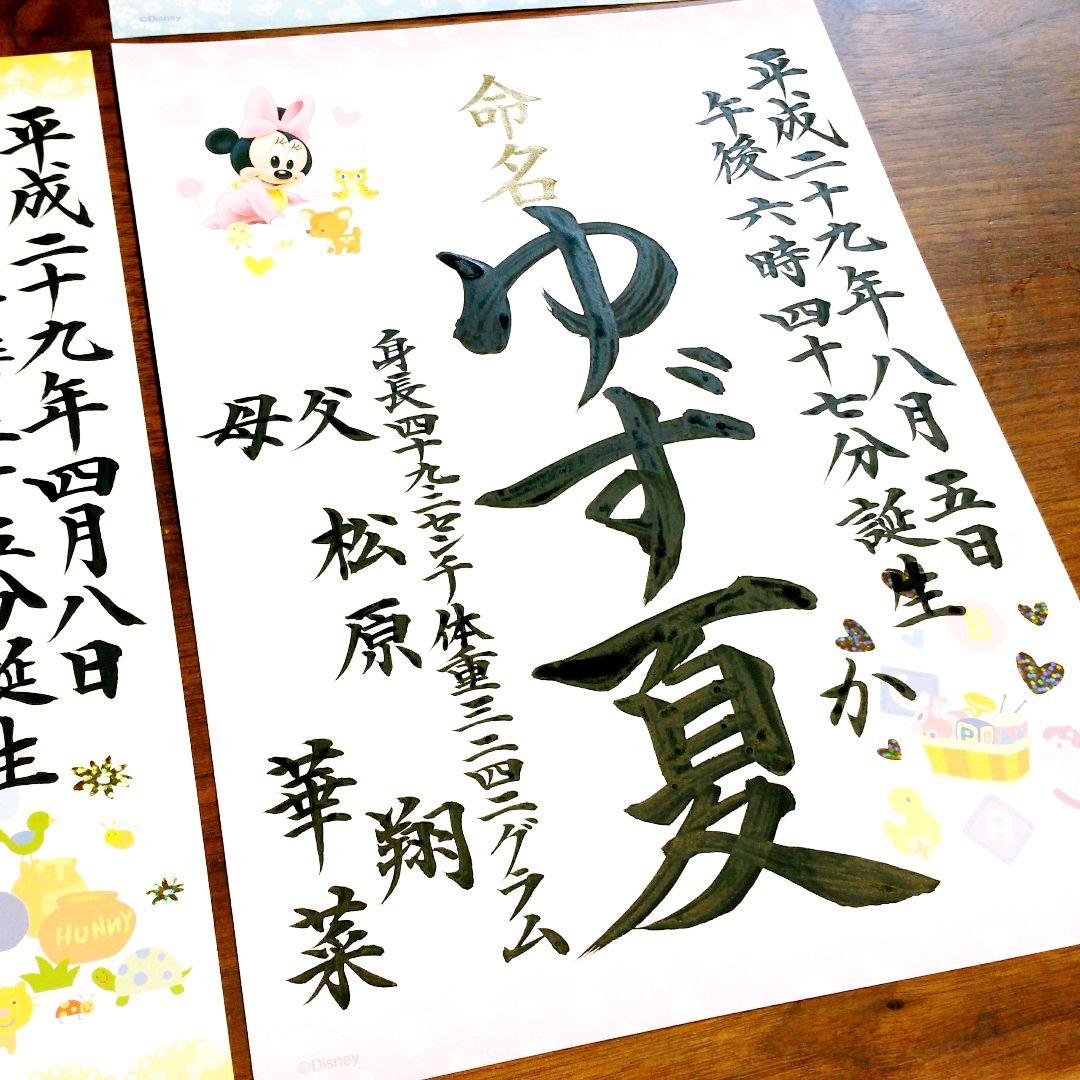 平成二十九年八月五日
午後六時四十七分誕生
命名
ゆず夏
か
身長四十九.二センチ 体重三二四二グラム
父 松原 翔
母 華菜
©Disney
平成二十九年四月八日
分誕生
HUNNY
©Disney
B
P
A